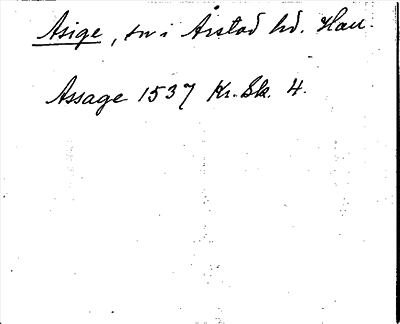 Asige, sn i Årstad hd. Hall.
Assage 1537 Kr. Sk. 4.